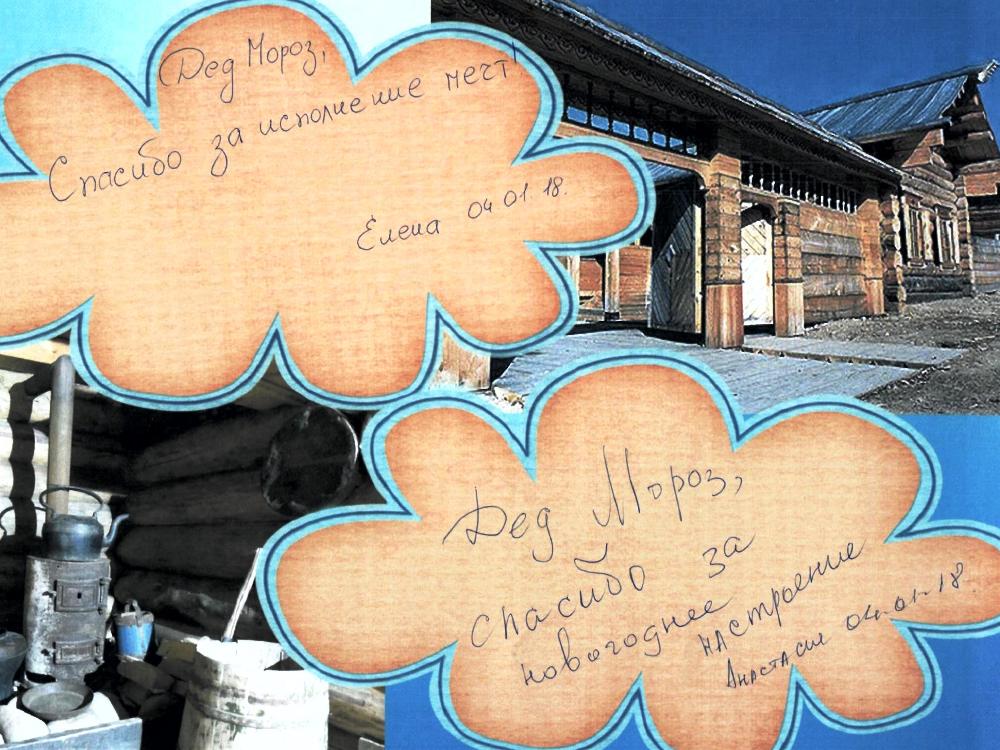 Дед Мороз,
Спасибо за исполнение мечт!
Елена 04.01.18.
Дед Мороз,
спасибо за
новогоднее
настроение
Анастасия 04.01.18.